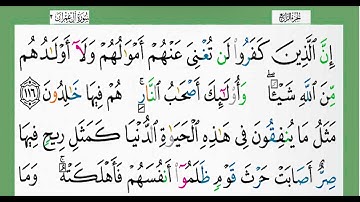 الجزء الرابع
سورة آل عمران ٣
إِنَّ ٱلَّذِينَ كَفَرُوا۟ لَن تُغْنِىَ عَنْهُمْ أَمْوَٰلُهُمْ وَلَآ أَوْلَـٰدُهُم
مِّنَ ٱللَّهِ شَيْـًٔا ۖ وَأُو۟لَـٰٓئِكَ أَصْحَـٰبُ ٱلنَّارِ ۚ هُمْ فِيهَا خَـٰلِدُونَ ﴿١١٦﴾
مَثَلُ مَا يُنفِقُونَ فِى هَـٰذِهِ ٱلْحَيَوٰةِ ٱلدُّنْيَا كَمَثَلِ رِيحٍ فِيهَا
صِرٌّ أَصَابَتْ حَرْثَ قَوْمٍ ظَلَمُوٓا۟ أَنفُسَهُمْ فَأَهْلَكَتْهُ ۚ وَمَا